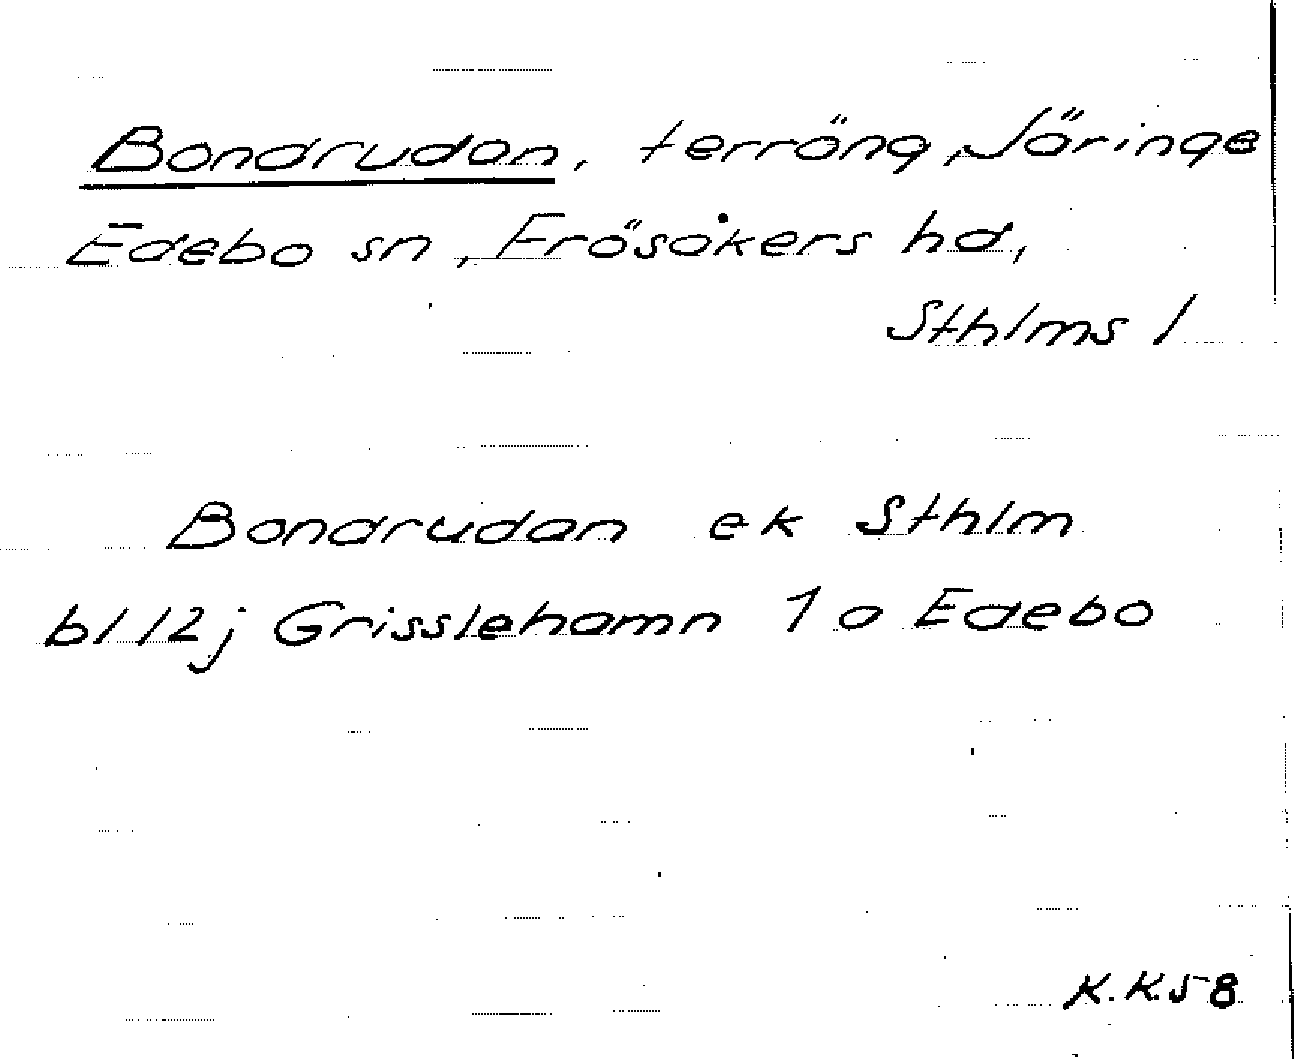 Bondrudan, terräng, Järinge
Edebo sn, Frösåkers hd,
Sthlms l
Bondrudan ek Sthlm
bl 12j Grisslehamn 1 o Edebo
K.K.58